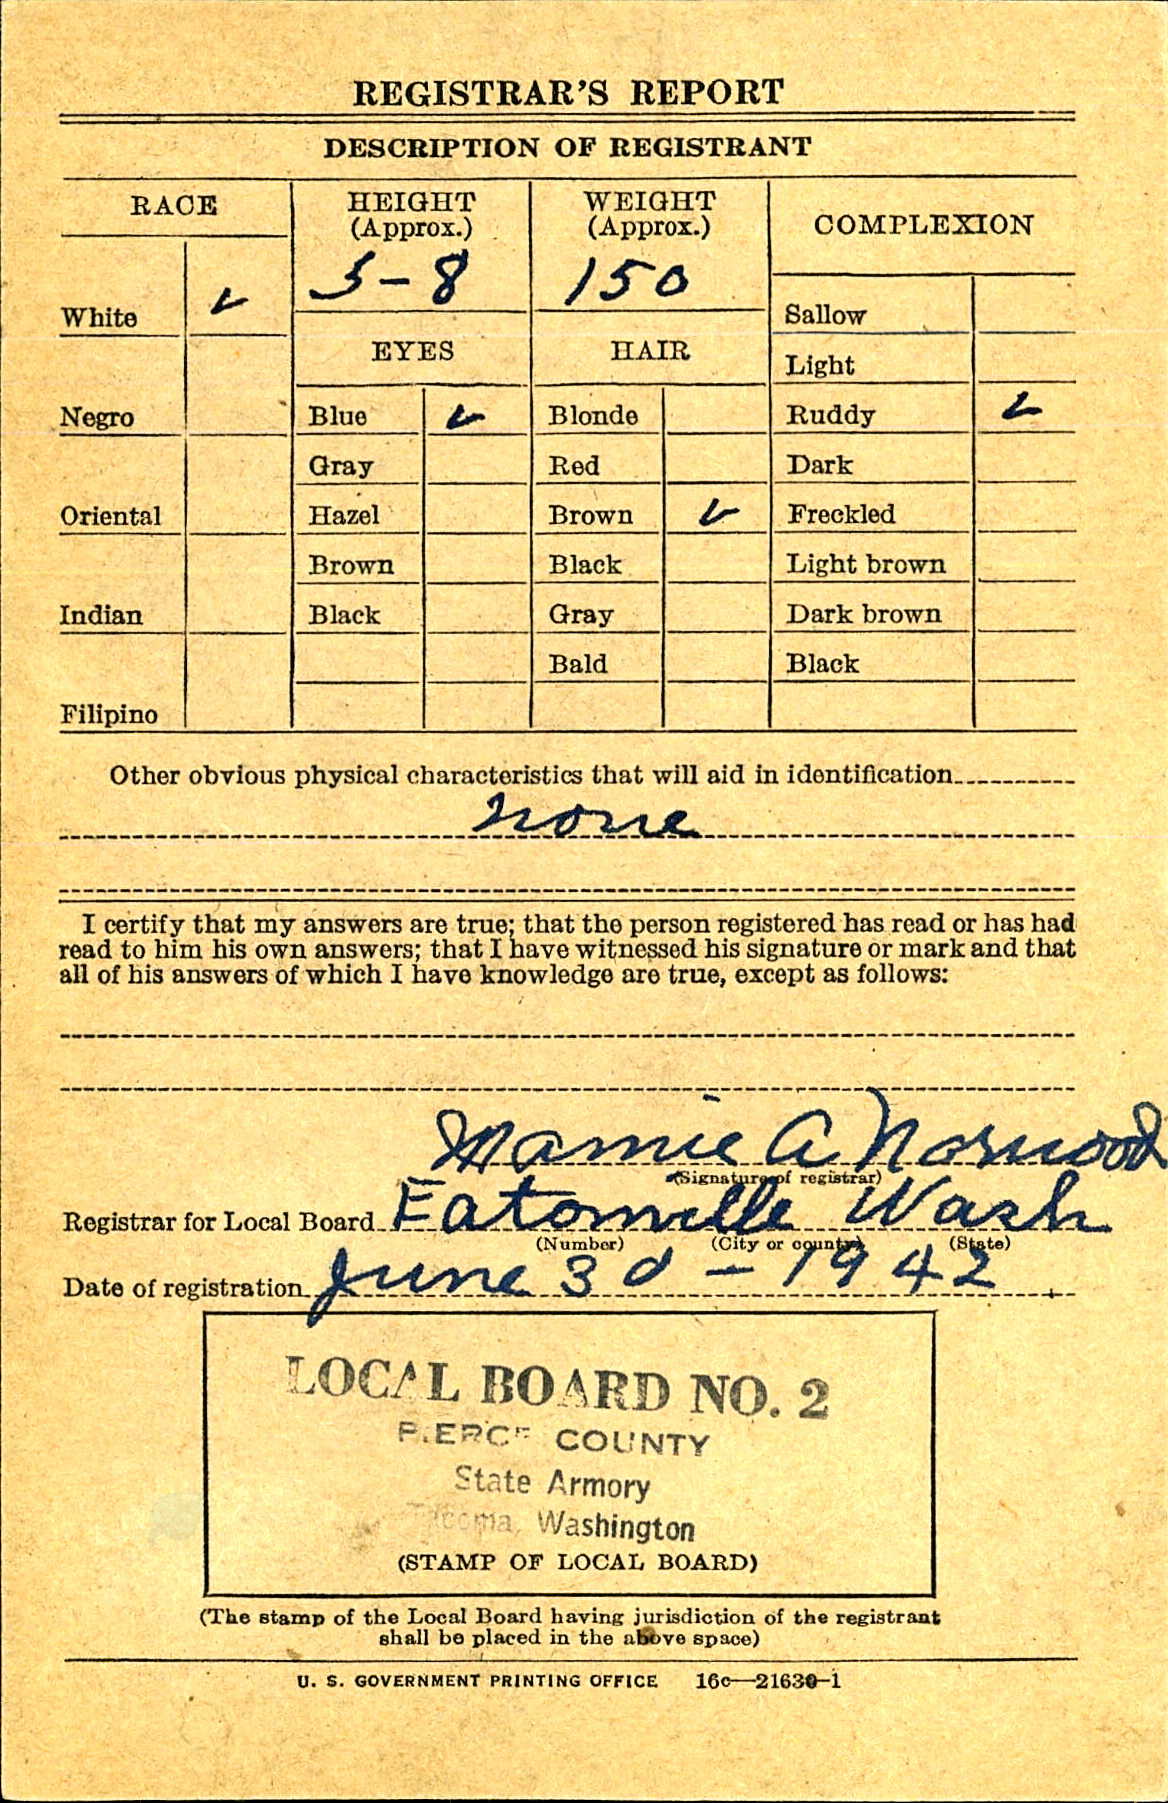 REGISTRAR'S REPORT
DESCRIPTION OF REGISTRANT
RACE
HEIGHT (Approx.)
WEIGHT (Approx.)
COMPLEXION
5-8
150
White ✓
EYES
HAIR
Sallow
Light
Negro
Blue ✓
Blonde
Ruddy ✓
Gray
Red
Dark
Oriental
Hazel
Brown ✓
Freckled
Brown
Black
Light brown
Indian
Black
Gray
Dark brown
Bald
Black
Filipino
Other obvious physical characteristics that will aid in identification
none
I certify that my answers are true; that the person registered has read or has had
read to him his own answers; that I have witnessed his signature or mark and that
all of his answers of which I have knowledge are true, except as follows:
Mamie A Norwood
(Signature of registrar)
Registrar for Local Board Eatonville Wash
(Number) (City or county) (State)
Date of registration June 30 - 1942
LOCAL BOARD NO. 2
PIERCE COUNTY
State Armory
Tacoma, Washington
(STAMP OF LOCAL BOARD)
(The stamp of the Local Board having jurisdiction of the registrant
shall be placed in the above space)
U. S. GOVERNMENT PRINTING OFFICE 16c—21630-1